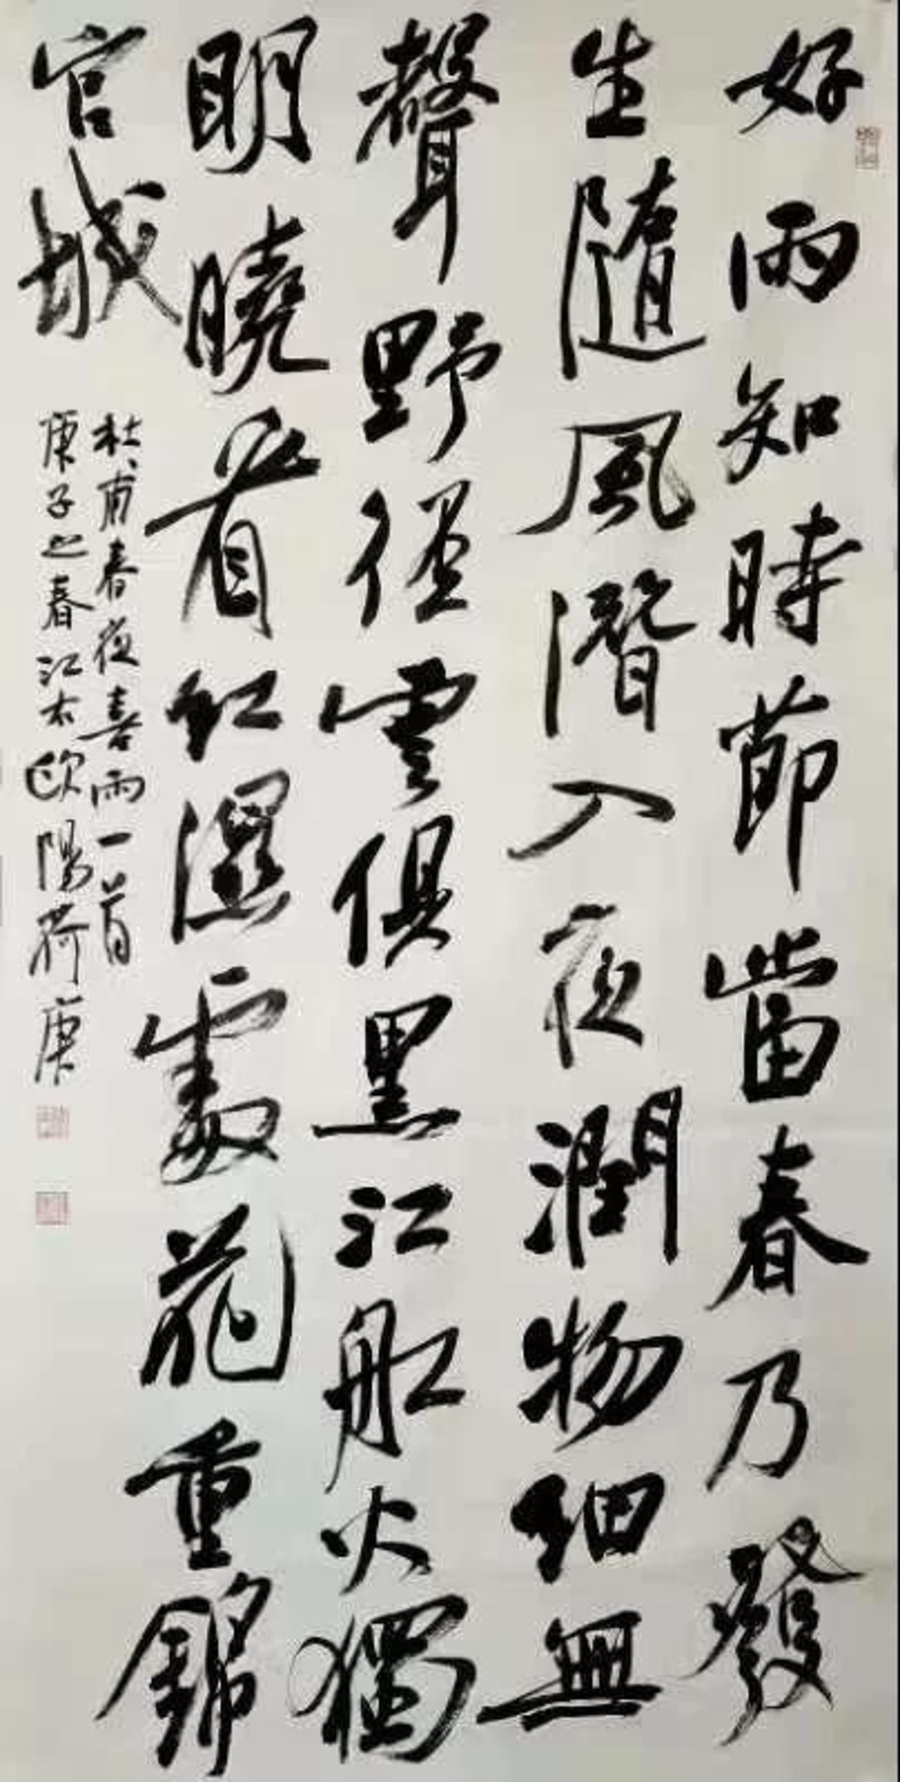 好雨知時節當春乃發
生隨風潛入夜潤物細無
聲野徑雲俱黑江船火獨
明曉看紅濕處花重錦
官城
杜甫春夜喜雨一首
庚子之春江右歐陽荷庚